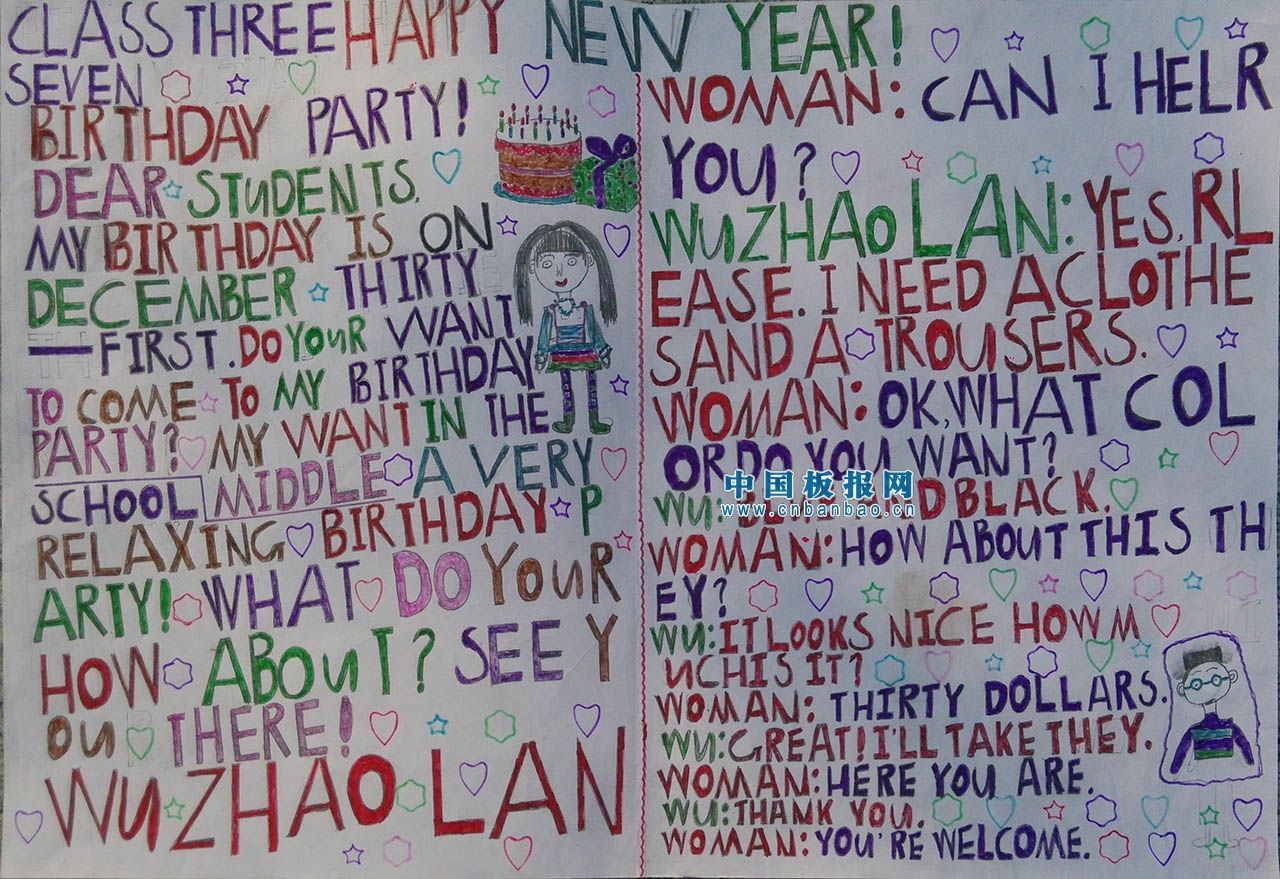 CLASS THREE HAPPY NEW YEAR!
SEVEN
BIRTHDAY PARTY!
DEAR STUDENTS,
MY BIRTHDAY IS ON
DECEMBER THIRTY
—FIRST. DO YOUR WANT
TO COME TO MY BIRTHDAY
PARTY? MY WANT IN THE
SCHOOL MIDDLE A VERY
RELAXING BIRTHDAY P
ARTY! WHAT DO YOUR
HOW ABOUT? SEE Y
OU THERE!
WUZHAO LAN
WOMAN: CAN I HELR
YOU?
WUZHAO LAN: YES, RL
EASE. I NEED A CLOTHE
SAND A TROUSERS.
WOMAN: OK, WHAT COL
OR DO YOU WANT?
WU: BLACK.
WOMAN: HOW ABOUT THIS TH
EY?
WU: IT LOOKS NICE HOW M
UCH IS IT?
WOMAN: THIRTY DOLLARS.
WU: GREAT! I'LL TAKE THEY.
WOMAN: HERE YOU ARE.
WU: THANK YOU.
WOMAN: YOU'RE WELCOME.
中国板报网
www.cnbanbao.cn